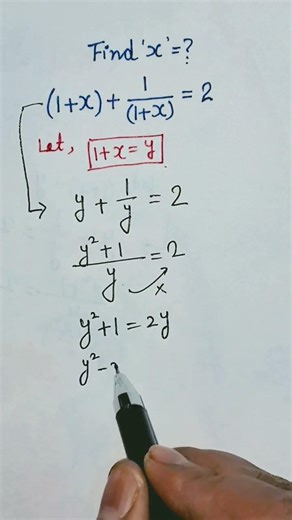 Find 'x' = ?
(1+x) + 1/(1+x) = 2
Let, 1+x = y
y + 1/y = 2
(y²+1)/y = 2
y²+1 = 2y
y² -